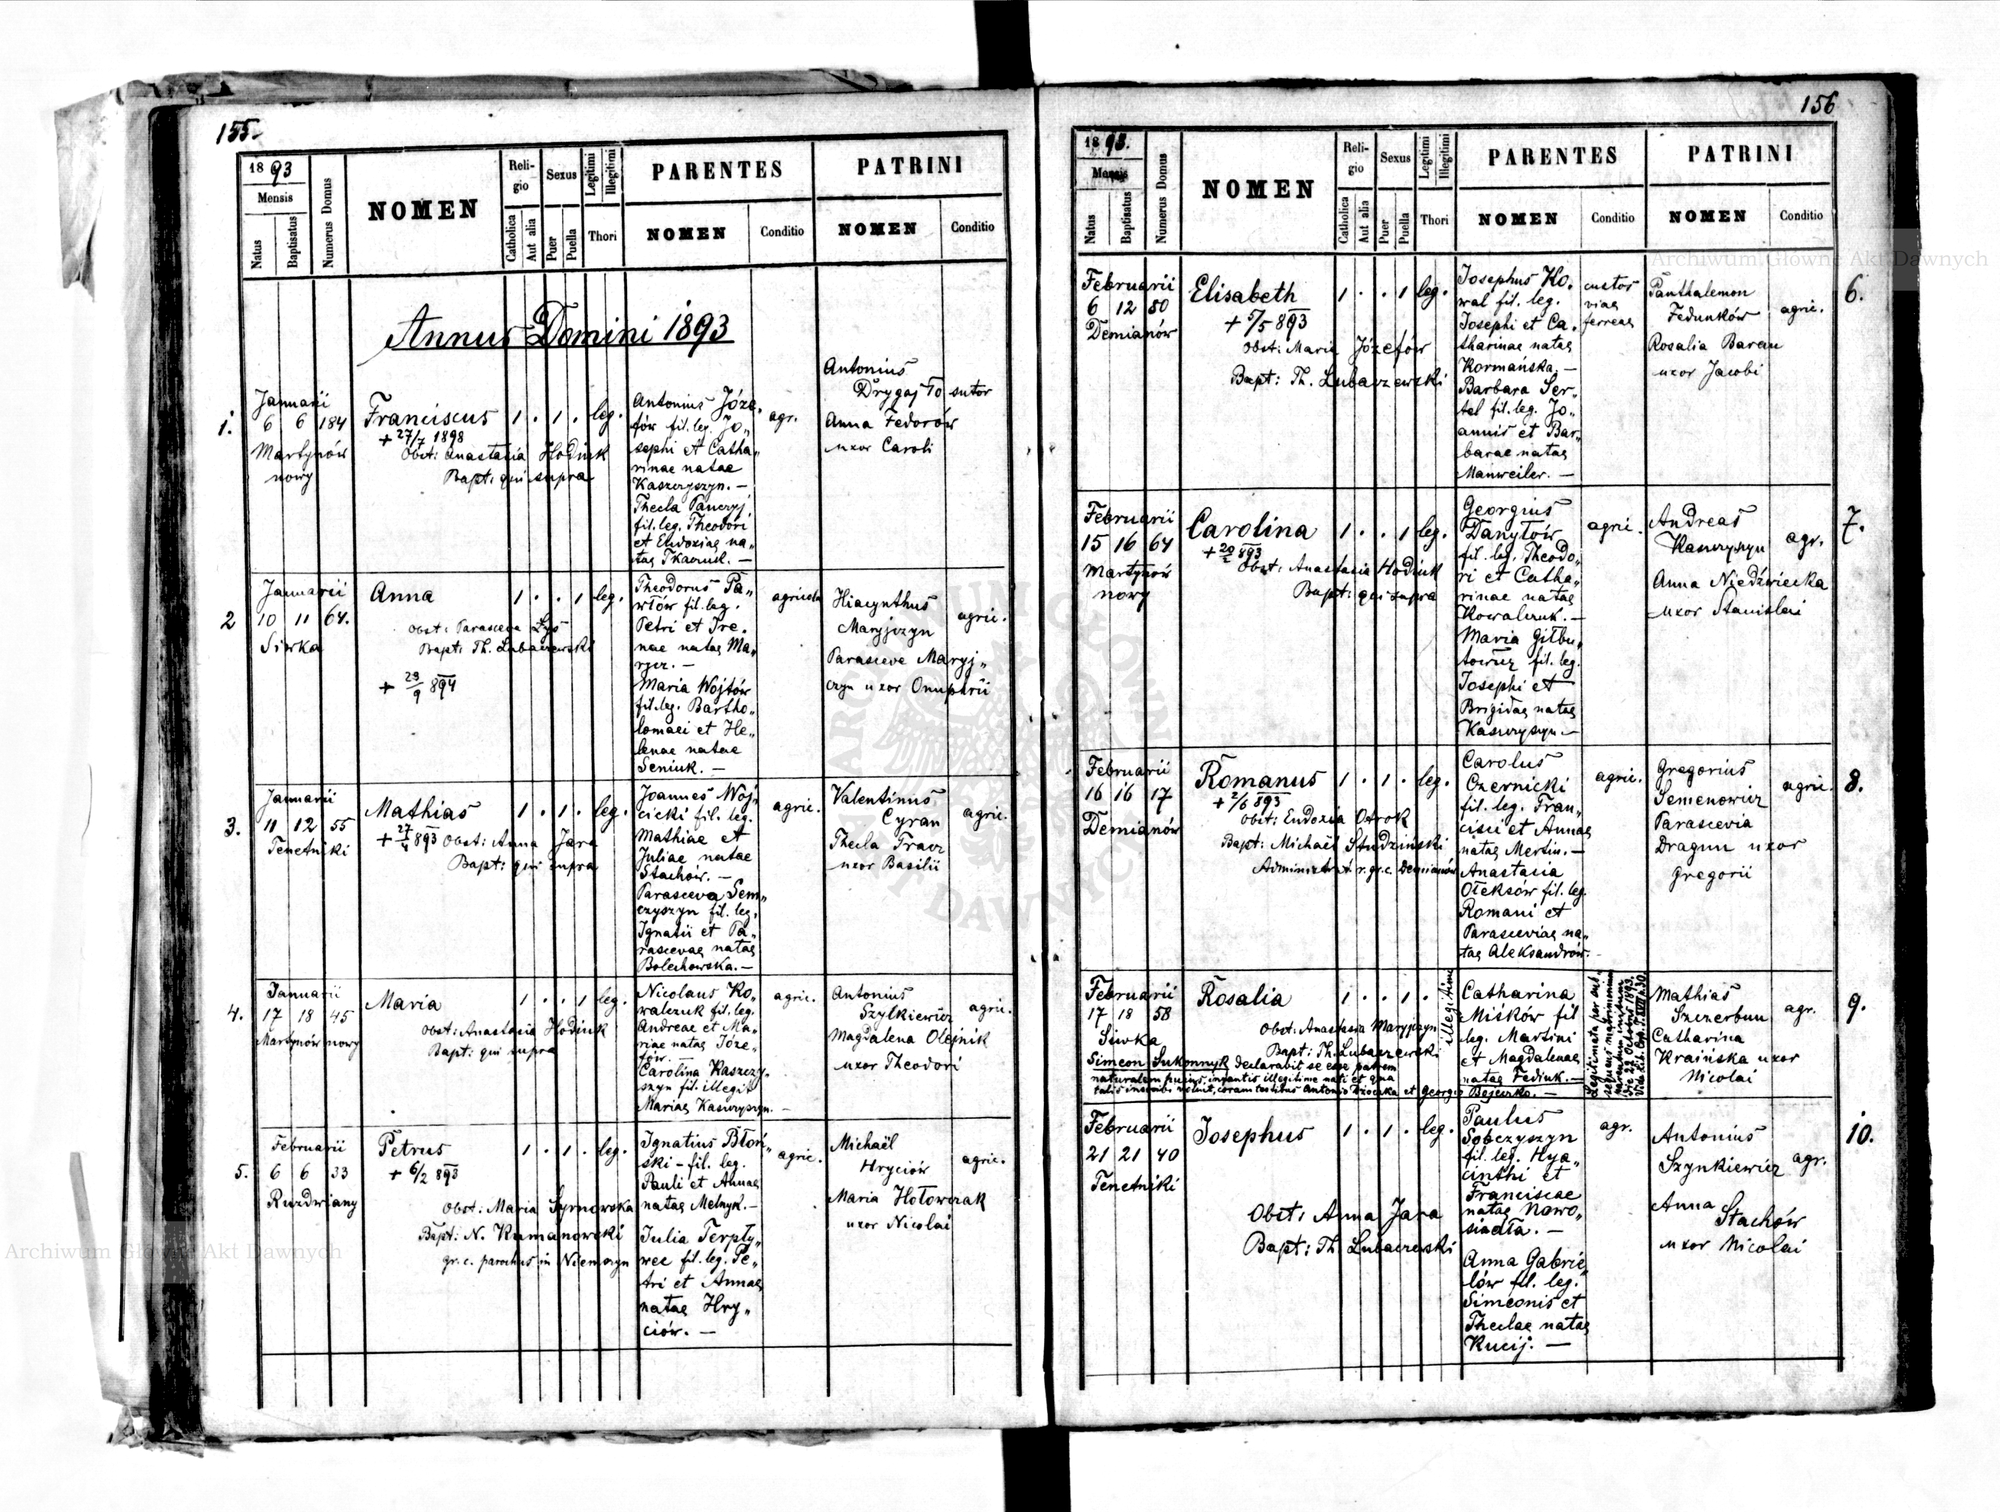 155.
1893
Mensis
Natus
Baptisatus
Numerus Domus
NOMEN
Religio
Catholica
Aut alia
Sexus
Puer
Puella
Legitimi
Illegitimi
Thori
PARENTES
NOMEN
Conditio
PATRINI
NOMEN
Conditio
Annus Domini 1893
1.
Januarii
6 6 184
Martynów
nowy
Franciscus
+ 27/7 1898
Obst: Anastasia Hodiuk
Bapt: qui supra
1 . 1 . leg.
Antonius Józe„
fów fil. leg. Jo„
sephi et Catha„
rinae natae
Kaszczyszyn. —
Thecla Panczyj
fil. leg. Theodori
et Eudoxiae na„
tae Tkaczuk. —
agr.
Antonius
Drygaj
sutor
Anna Fedorów
uxor Caroli
2
Januarii
10 11 64.
Siwka
Anna
Obst: Parasceva Łys
Bapt: Th. Lubaczewski
+ 29/9 894
1 . . 1 leg.
Theodorus Pa„
włów fil. leg.
Petri et Ire„
nae natae Ma„
Maria Wojtów
fil. leg. Bartho„
lomaei et He„
lenae natae
Seniuk. —
agricola
Hiacynthus
Maryjczyn
agric.
Parasceve Maryj„
czyn uxor Onuphrii
3.
Januarii
11 12 55
Tenetniki
Mathias
+ 27/4 893 Obst: Anna Jara
Bapt: qui supra
1 . 1 . leg.
Joannes Woj„
cicki fil. leg.
Mathiae et
Juliae natae
Stachów. —
Parasceva Sem„
czyszyn fil. leg.
Ignatii et Pa„
rascevae natae
Bolechowska. —
agric.
Valentinus
Cyran
agric.
Thecla Tracz
uxor Basilii
4.
Januarii
17 18 45
Martynów nowy
Maria
Obst: Anastasia Hodiuk
Bapt: qui supra
1 . . 1 leg.
Nicolaus Ko„
walczuk fil. leg.
Andreae et Ma„
riae natae Józe„
fów. —
Carolina Kaszczy„
szyn fil. illegit
Mariae Kaszczyszyn. —
agric.
Antonius
Szylkiewicz
agric.
Magdalena Olejnik
uxor Theodori
5.
Februarii
6 6 33
Ruzdwiany
Petrus
+ 6/2 893
Obst: Maria Syrnowska
Bapt: N. Rumanowski
gr. c. parochus in Niemszyn
1 . 1 . leg.
Ignatius Błoń„
ski - fil. leg.
Pauli et Annae
natae Melnyk. —
Julia Terpły„
wec fil. leg. Pe„
tri et Annae
natae Hry„
ciów. —
agric.
Michaël
Hryciów
agric.
Maria Hołowczak
uxor Nicolai
156
1893.
Mensis
Natus
Baptisatus
Numerus Domus
NOMEN
Religio
Catholica
Aut alia
Sexus
Puer
Puella
Legitimi
Illegitimi
Thori
PARENTES
NOMEN
Conditio
PATRINI
NOMEN
Conditio
Februarii
6 12 50
Demianów
Elisabeth
+ 5/5 893
Obst: Maria Józefów
Bapt: Th. Lubaczewski
1 . . 1 leg.
Josephus Ko„
wal fil. leg.
Josephi et Ca„
tharinae natae
Kormańska. —
Barbara Ser„
tel fil. leg. Jo„
annis et Bar„
barae natae
Manweiler. —
custos
viae
ferreae
Panthalemon
Fedunków
agric.
Rosalia Baran
uxor Jacobi
6.
Februarii
15 16 64
Martynów
nowy
Carolina
+ 20/2 893
Obst: Anastasia Hodiuk
Bapt: qui supra
1 . . 1 leg.
Georgius
Danyłów
fil. leg. Theodo„
ri et Catha„
rinae natae
Kowalczuk. —
Maria Gilbu„
towicz fil. leg.
Josephi et
Brigidae natae
Kaszczyszyn. —
agric.
Andreas
Kaszczyszyn
agr.
Anna Niedźwiecka
uxor Stanislai
7.
Februarii
16 16 17
Demianów
Romanus
+ 2/6 893
Obst: Eudoxia Otrok
Bapt: Michaël Studziński
Administrat r. gr. c. Demianów
1 . 1 . leg.
Carolus
Czernicki
fil. leg. Fran„
cisci et Annae
natae Mersin. —
Anastasia
Ołeksów fil. leg.
Romani et
Parasceviae na„
tae Aleksandrów. —
agric.
Gregorius
Semenowicz
agric.
Parascevia
Dragun uxor
Gregorii
8.
Februarii
17 18 58
Siwka
Rosalia
Obst: Anastasia Maryjczyn
Bapt: Th. Lubaczewski
Simeon Sukonnyk declarabit se esse patrem
naturalem hujus infantis illegitime nati et qua
talis inscribi voluit, coram testibus Antonio Dzočzka et Georgio Bojeczko. —
1 . . 1 .
illegitimi
Catharina
Miśków fil
leg. Martini
et Magdalenae
natae Fediuk. —
Legitimata per sub„
sequens matrimonium
Mathias
Szczerbun
agr.
Catharina
Kraińska uxor
Nicolai
9.
Februarii
21 21 40
Tenetniki
Josephus
Obst: Anna Jara
Bapt: Th. Lubaczewski
1 . 1 . leg.
Paulus
Sobczyszyn
fil. leg. Hya„
cinthi et
Franciscae
natae Nowo„
siadła. —
Anna Gabrie„
lów fil. leg.
Simeonis et
Theclae natae
Kucij. —
agr.
Antonius
Szynkiewicz
agr.
Anna
Stachów
uxor Nicolai
10.
Archiwum Główne Akt Dawnych
Archiwum Główne Akt Dawnych
ARCHIWUM GŁÓWNE AKT DAWNYCH